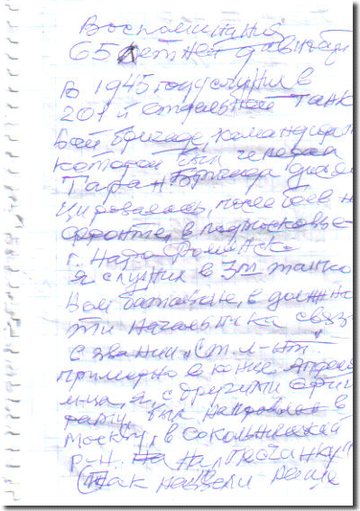 Воспоминания
65 летней давности
В 1945 году служил в
201й отдельной танко
вой бригаде, командиром
которой был
Таран Бригада
после боёв на
фронте, в подмосковье
г. Наро Фоминске
я служил в 3м танко
вом батальоне, в должнос
ти начальника связи
с звании „Ст. л-нт"
примерно в конце Апреля
м-ца, я с другими офи
был направлен в
Москву, в Сокольнический
р-н. На „
(Так